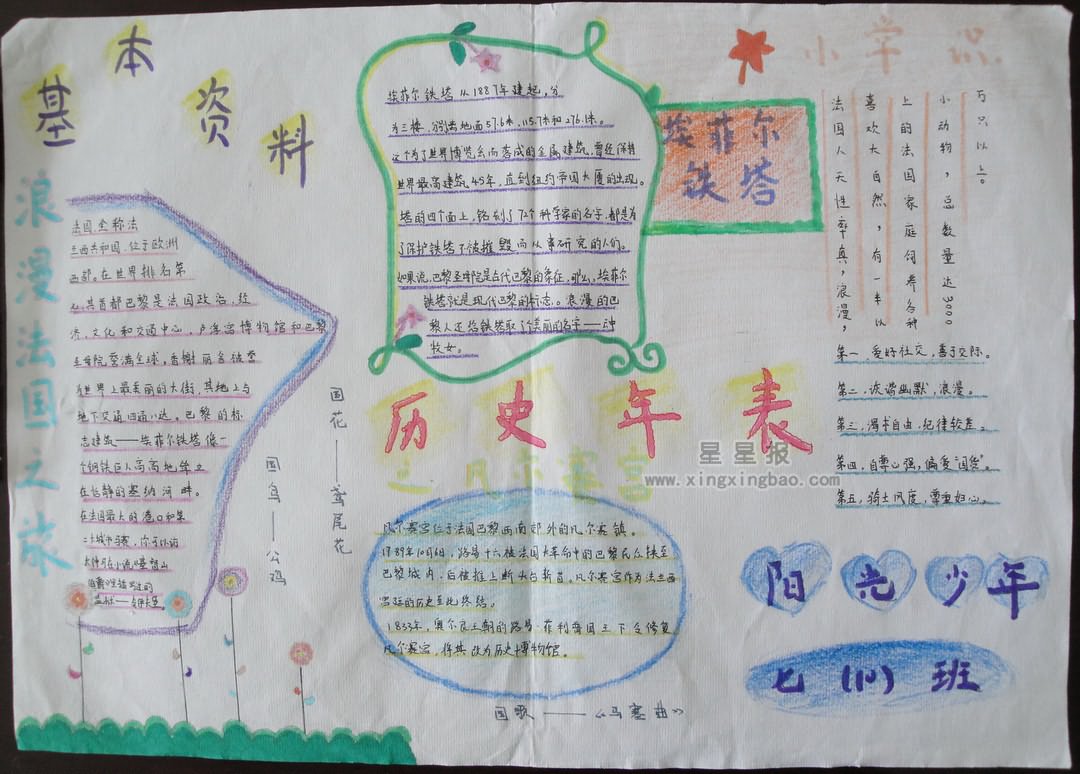 基本资料
浪漫法国之旅
法国全称法
兰西共和国,位于欧洲
西部。在世界排名第
从其首都巴黎是法国政治,经
济,文化和交通中心,卢浮宫博物馆和巴黎
圣母院誉满全球,香榭丽舍被誉
为世界上最美丽的大街,其地上与
地下交通四通八达。巴黎的标
志建筑——埃菲尔铁塔像一
个钢铁巨人高高地耸立
在恬静的塞纳河畔。
在法国最大的港口和第
二大城市马赛,你可以访
国鸟——公鸡
国花——鸢尾花
埃菲尔铁塔从1887年建起,分
为三楼,分别离地面57.6米,115.7米和276.1米。
这个为了世界博览会而落成的金属建筑,曾经保持
世界最高建筑45年,直到纽约帝国大厦的出现。
塔的四个面上,铭刻了72个科学家的名字,都是为
了保护铁塔不被摧毁而从事研究的人们。
如果说,巴黎圣母院是古代巴黎的象征,那么,埃菲尔
铁塔就是现代巴黎的标志。浪漫的巴
黎人还给铁塔取了个美丽的名字——云中
牧女。
埃菲尔
铁塔
历史年表
之凡尔赛宫
凡尔赛宫位于法国巴黎西南郊外的凡尔赛镇。
1789年10月6日,路易十六被法国大革命中的巴黎民众挟至
巴黎城内,后被推上断头台斩首。凡尔赛宫作为法兰西
宫廷的历史至此终结。
1833年,奥尔良王朝的路易·菲利普国王下令修复
凡尔赛宫,将其改为历史博物馆。
国歌——《马赛曲》
小常识
法国人天性率真,浪漫,
喜欢大自然,有一半以
上的法国家庭饲养各种
小动物,总数量达3000
万只以上。
第一、爱好社交,善于交际。
第二、诙谐幽默,浪漫。
第三,渴求自由,纪律较差。
第四、自尊心强,偏爱“国货”。
第五,骑士风度,尊重妇女。
星星报
www.xingxingbao.com
阳光少年
七(10)班